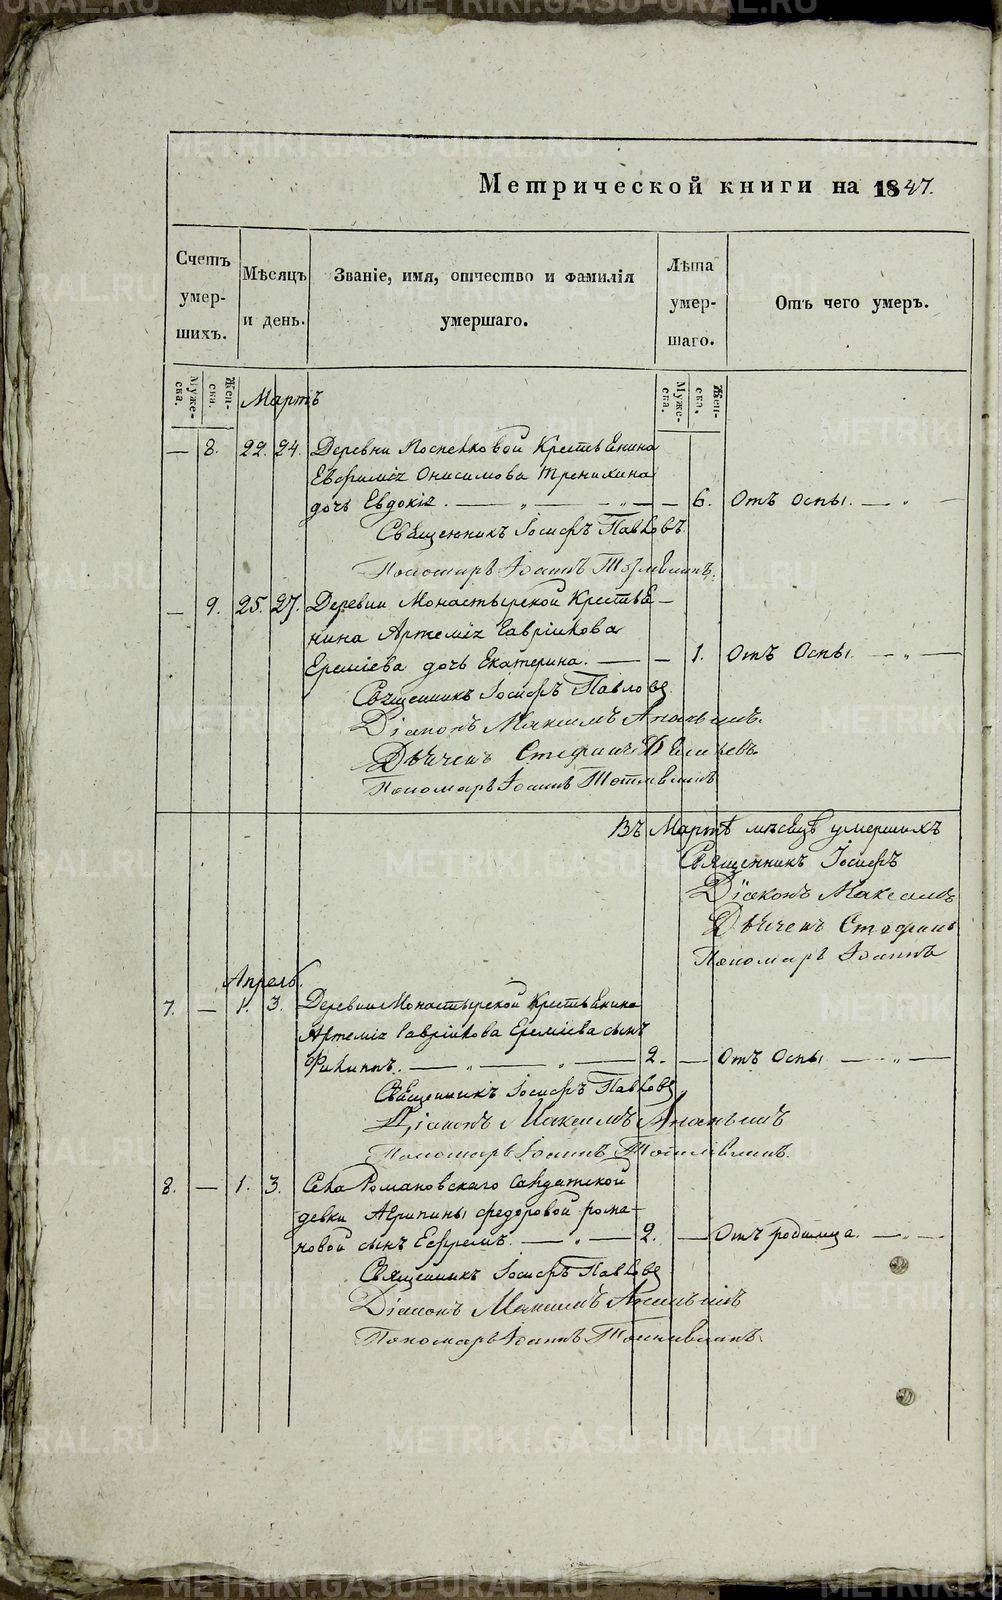 Метрической книги на 1847.
Счетъ умер- шихъ.
Мѣсяцъ и день.
Званіе, имя, отчество и фамилія умершаго.
Лѣта умер- шаго.
Отъ чего умеръ.
Муже- ска. Жен- ска.
Муже- ска. Жен- ска.
Мартъ
— 8. 22. 24. Деревни Крестьянина
Евфимія Онисимова
дочь Евдокія. — „ — „ — — 6. Отъ Оспы. — „ —
Священникъ Іосифъ Павловъ
Пономарь Іоаннъ
— 9. 25. 27. Деревни Монастырской Крестья-
нина Артемія Гаврійлова
Еремѣева дочь Екатерина. — — 1. Отъ Оспы. — „ —
Священникъ Іосифъ Павловъ
Діаконъ Максимъ Ананьинъ.
Дьячекъ Стефанъ
Пономарь Іоаннъ
Въ Мартѣ мѣсяцѣ умершихъ
Священникъ Іосифъ
Діаконъ Максимъ
Дьячекъ Стефанъ
Пономарь Іоаннъ
Апрель.
7. — 1. 3. Деревни Монастырской Крестьянина
Артемія Гаврійлова Еремѣева сынъ
Филиппъ. — „ — „ — 2. — Отъ Оспы — „ —
Священникъ Іосифъ Павловъ
Діаконъ Максимъ Ананьинъ
Пономарь Іоаннъ
8. — 1. 3. Села Романовскаго Салдатской
девки Агрипины Федоровой Рома-
новой сынъ Ефремъ. — „ — 2. — Отъ родимца. — „ —
Священникъ Іосифъ Павловъ
Діаконъ Максимъ Ананьинъ
Пономарь Іоаннъ
METRIKI.GASO-URAL.RU